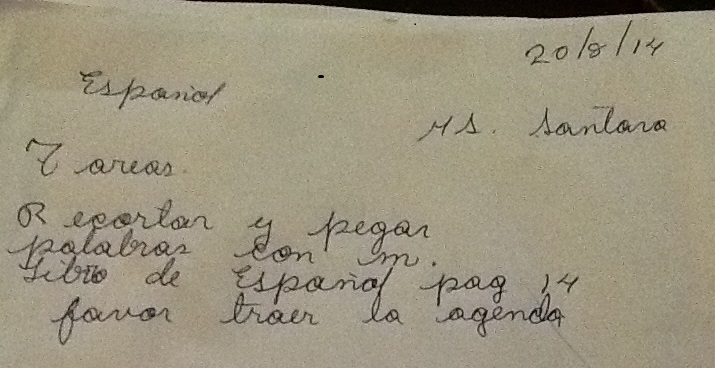 20/8/14
Español
MS. Santana
Tareas.
Recortar y pegar
palabras con m.
Libro de Español pag 14
favor traer la agenda